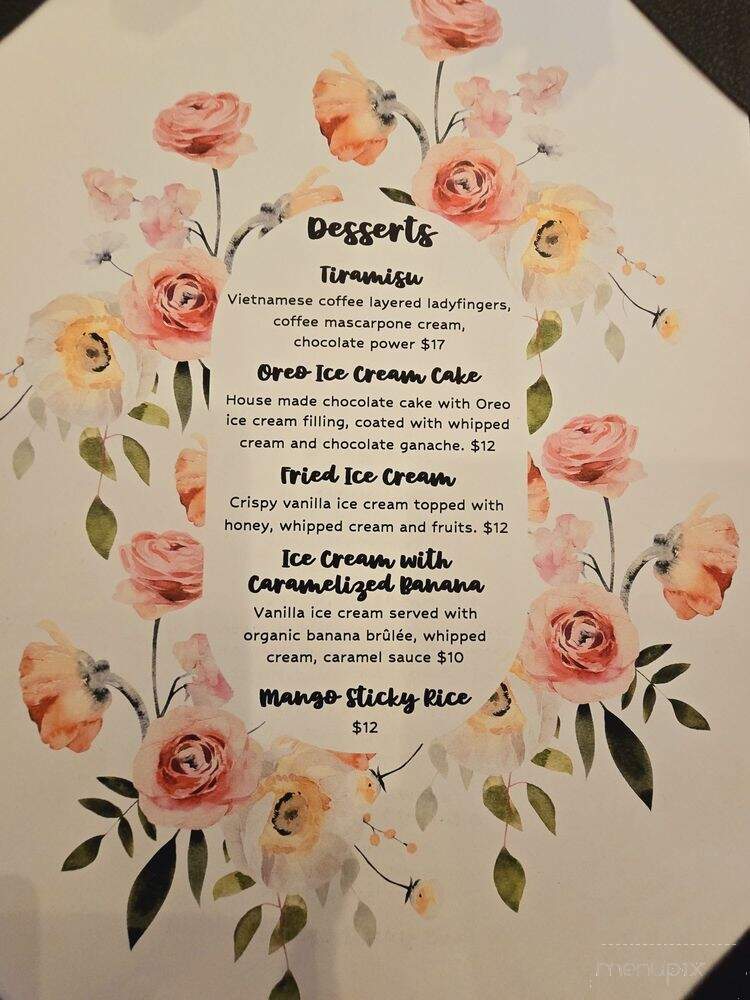 Desserts
Tiramisu
Vietnamese coffee layered ladyfingers,
coffee mascarpone cream,
chocolate power $17
Oreo Ice Cream Cake
House made chocolate cake with Oreo
ice cream filling, coated with whipped
cream and chocolate ganache. $12
Fried Ice Cream
Crispy vanilla ice cream topped with
honey, whipped cream and fruits. $12
Ice Cream with
Caramelized Banana
Vanilla ice cream served with
organic banana brûlée, whipped
cream, caramel sauce $10
Mango Sticky Rice
$12
menupix